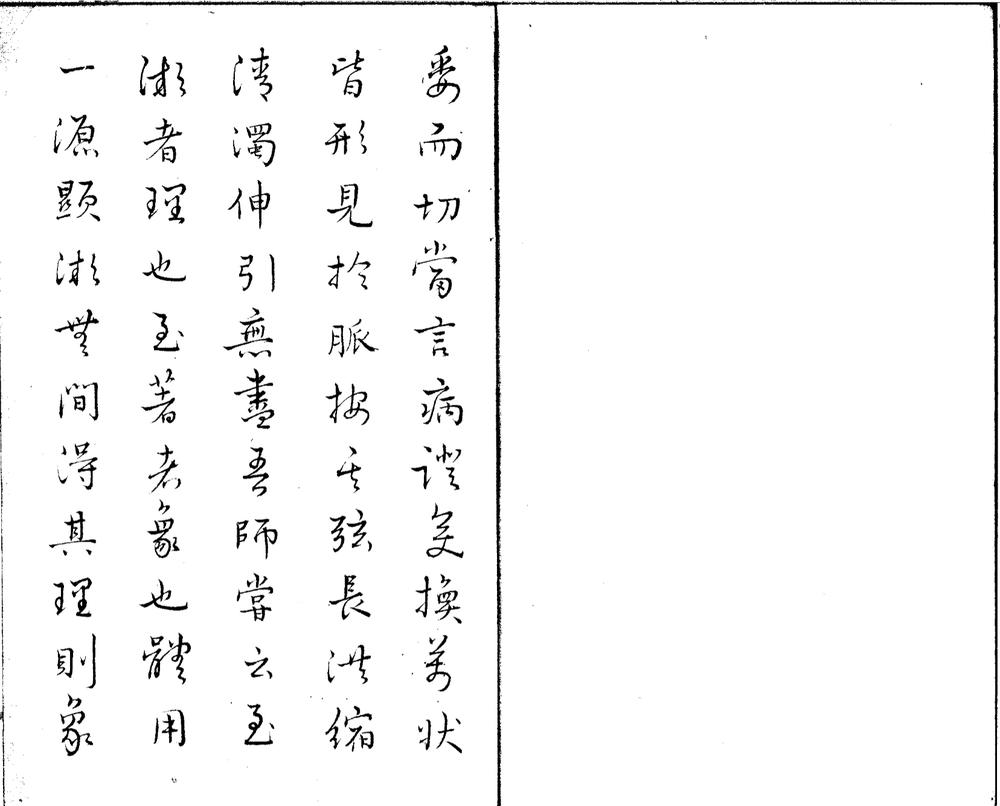 委而切當言病證変換萬状
皆形見於脈按其弦長洪縮
清濁伸引無盡吾師嘗云至
微者理也至著者象也體用
一源顯微無間得其理則象